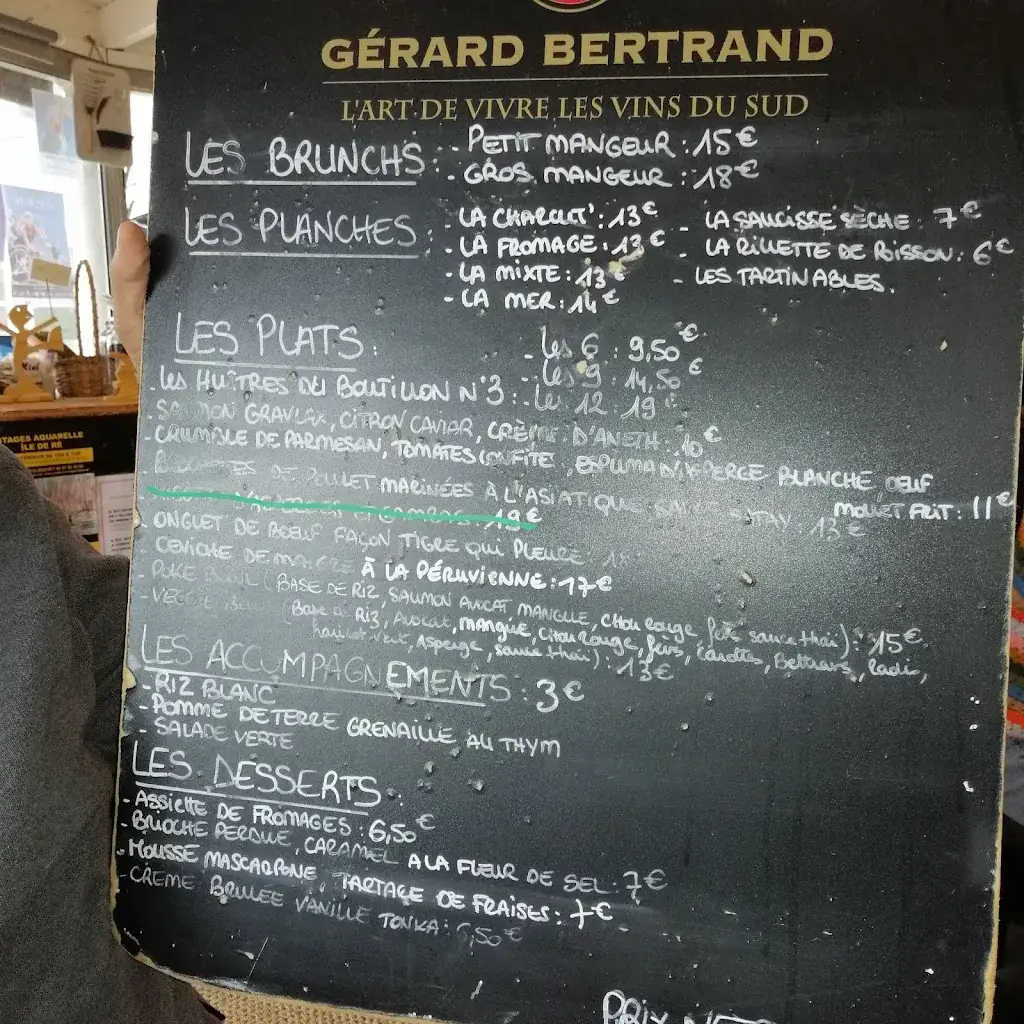 GÉRARD BERTRAND
L'ART DE VIVRE LES VINS DU SUD
LES BRUNCHS : - PETIT MANGEUR : 15€
- GROS MANGEUR : 18€
LES PLANCHES : - LA CHARCUT' : 13€ - LA SAUCISSE SÈCHE : 7€
- LA FROMAGE : 13€ - LA RILLETTE DE POISSON : 6€
- LA MIXTE : 13€ - LES TARTINABLES.
- LA MER : 14€
LES PLATS :
- Les 6 : 9,50€
- Les 9 : 14,50€
- LES HUÎTRES DU BOUTILLON N°3 : - Les 12 : 19€
- SAUMON GRAVLAX, CITRON CAVIAR, CRÈME D'ANETH : 10€
- CRUMBLE DE PARMESAN, TOMATES CONFITE, ESPUMA D'ASPERGE BLANCHE OEUF
MOLLET FRIT : 11€
DE POULET MARINÉES À L'ASIATIQUE 13€
19€
- ONGLET DE BOEUF FAÇON TIGRE QUI PLEURE 18
- CEVICHE DE MAIGRE À LA PÉRUVIENNE : 17€
- POKE BOWL (BASE DE RIZ, SAUMON AVOCAT MANGUE, CHOU ROUGE, fèves sauce thaï) : 15€
- VEGGIE BOWL (Base de Riz, Avocat, mangue, Chou Rouge, fèves, Carottes, Bettrave, Radis,
haricot vert, Asperge, sauce thaï) : 13€
LES ACCOMPAGNEMENTS : 3€
- RIZ BLANC
- POMME DE TERRE GRENAILLE AU THYM
- SALADE VERTE
LES DESSERTS :
- ASSIETTE DE FROMAGES : 6,50€
- BRIOCHE PERDUE, CARAMEL A LA FLEUR DE SEL : 7€
- MOUSSE MASCARPONE, TARTAGE DE FRAISES : 7€
- CRÈME BRULEE VANILLE TONKA : 6,50€
PRIX
STAGES AQUARELLE
ÎLE DE RÉ